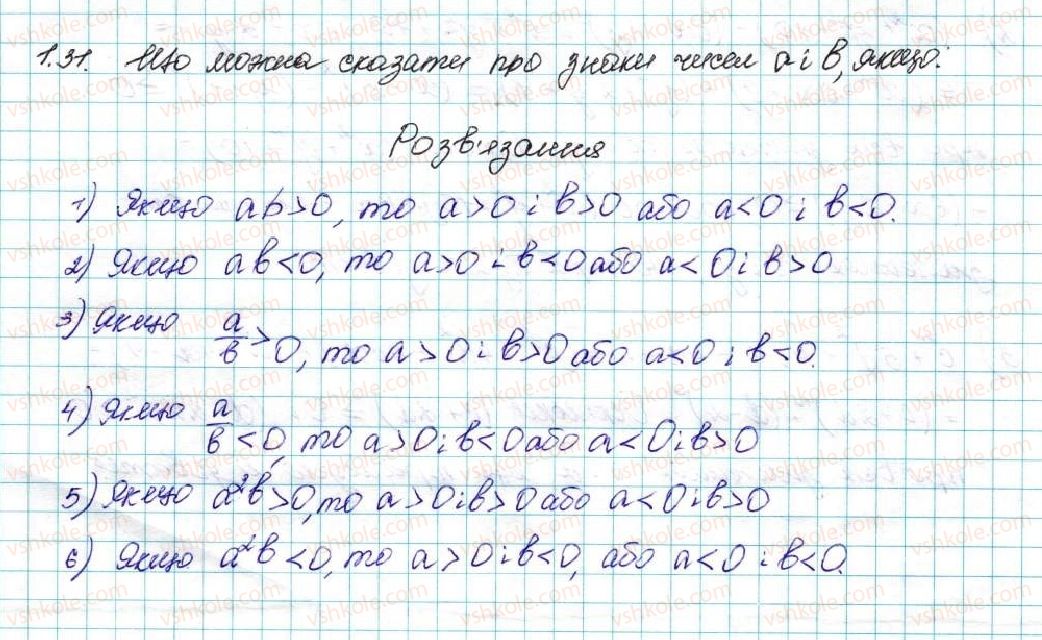 1.31. Що можна сказати про знаки чисел a і b, якщо:
Розв'язання
1) Якщо ab>0, то a>0 і b>0 або a<0 і b<0.
2) Якщо ab<0, то a>0 і b<0 або a<0 і b>0
3) Якщо a/b>0, то a>0 і b>0 або a<0 і b<0.
4) Якщо a/b<0, то a>0 і b<0 або a<0 і b>0
5) Якщо a²b>0, то a>0 і b>0 або a<0 і b>0
6) Якщо a²b<0, то a>0 і b<0, або a<0 і b<0.